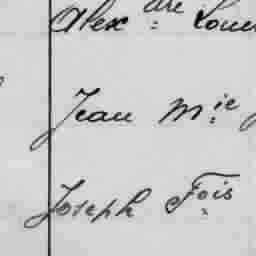 Alex.dre Loue
Jean M.ie
Joseph F.ois